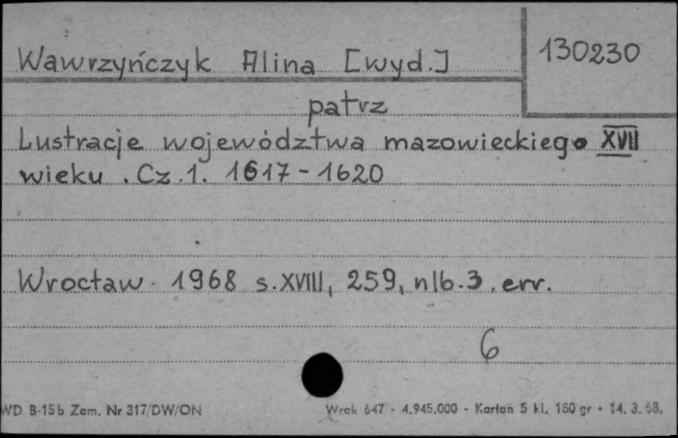 Wawrzyńczyk Alina [wyd.] 130230
patrz
Lustracje województwa mazowieckiego XVII
wieku. Cz.1. 1617-1620
Wrocław 1968 s.XVIII, 259, nlb.3, err.
6
WD B-15b Zam. Nr 317/DW/ON Wrek 647 - 4.945.000 - Karton 5 kl. 180 gr - 14. 3. 68.